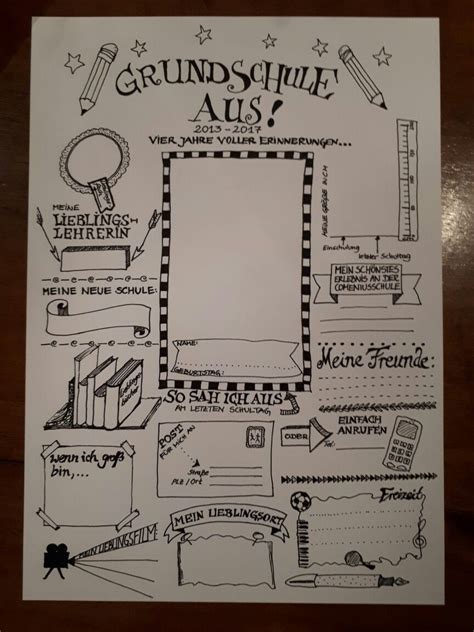 GRUNDSCHULE
AUS!
2013-2017
VIER JAHRE VOLLER ERINNERUNGEN...
MEINE
LIEBLINGS-
LEHRERIN
MEINE NEUE SCHULE:
Lieblings
bücher
wenn ich groß
bin,...
MEIN LIEBLINGSFILM
NAME:
GEBURTSTAG:
SO SAH ICH AUS
AM LETZTEN SCHULTAG
POST
FÜR MICH AN
Straße
PLZ / Ort
MEIN LIEBLINGSORT
MEINE GRÖßE IN CM
Einschulung
letzter Schultag
MEIN SCHÖNSTES
ERLEBNIS AN DER
COMENIUSSCHULE
Meine Freunde:
ODER
EINFACH
ANRUFEN
Tel:
Freizeit